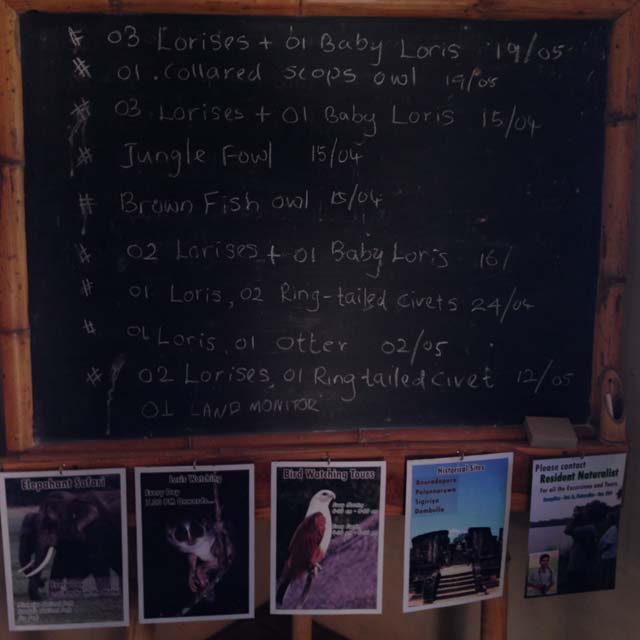 # 03 Lorises + 01 Baby Loris 19/05
# 01. Collared scops owl 19/05
# 03 Lorises + 01 Baby Loris 15/04
# Jungle Fowl 15/04
# Brown Fish owl 15/04
# 02 Lorises + 01 Baby Loris 16/
# 01 Loris, 02 Ring-tailed civets 24/04
# 01 Loris, 01 Otter 02/05
# 02 Lorises, 01 Ring tailed civet 12/05
01 LAND MONITOR
Elephant Safari
Loris Watching
Every Day
Bird Watching Tours
Historical Sites
Anuradapura
Polonnaruwa
Sigiriya
Dambulla
Please contact
Resident Naturalist
For all the Excursions and Tours.